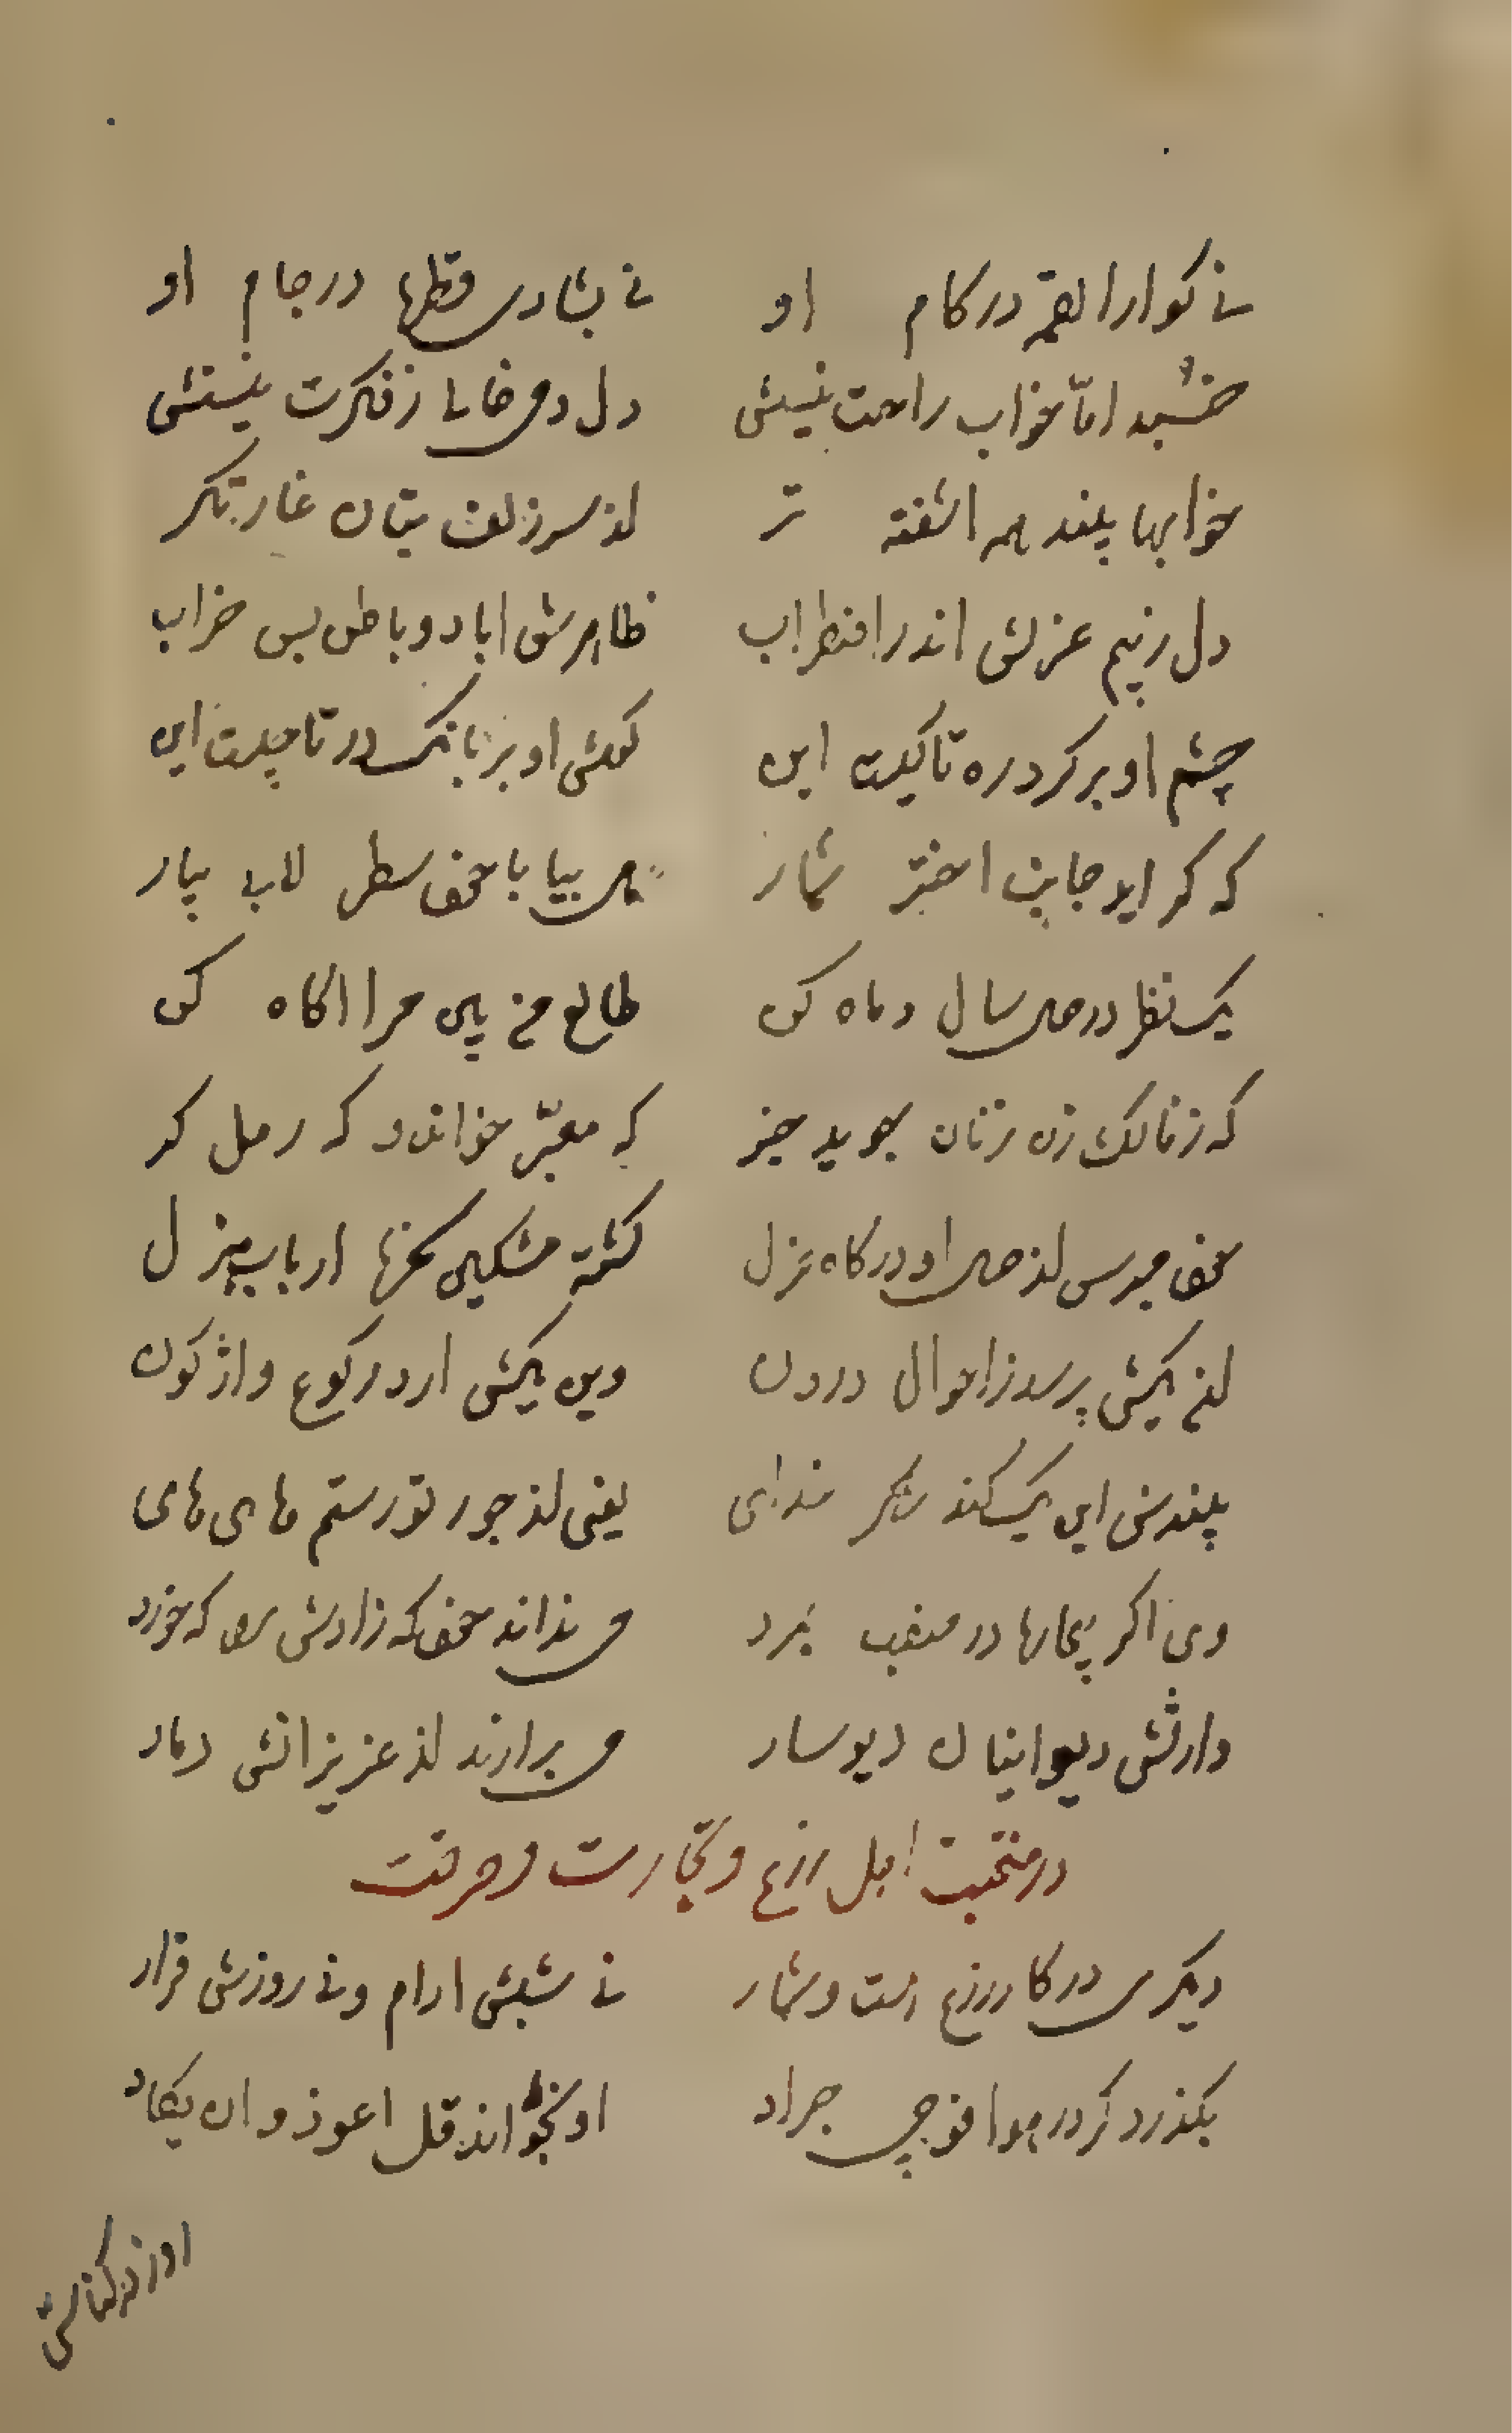 نے کوارا لقمهٔ در کام او نے بشادی قطرها در جام او
خسبد امّا خواب راحت نیستش دل دمی خالی ز فکرت نیستش
خوابها بیند همه اشفته تر از سر زلف بتان غارتکر
دل ز بیم عزلش اندر اضطراب ظاهرش اباد و باطن بس خراب
چشم او بر کرد ره تا کیست این کوش او بر بانک در تا چیست این
که کر اید جانب اختر شمار می بیا با سطر لاب بیار
یک نظر در سال و ماه کن طالع من بین مرا اکاه کن
که ز فالک زن زنان جوید خبر که معبّر خواند و که رمل کر
مپرس از حال او در کاه عزل کشته مشکین ارباب هزل
ان یکش پرسد ز احوال درون وین یکش ارد رکوع واژکون
بیندش این یک کند شکر خدای یعنی از جور تو رستم های های
وین اکر بیچارها در منصب بمرد می نداند که زادش را که خورد
وارثش دیوانیان دیوسار می برارند از عزیزانش دمار
در منقبت اهل زرع و تجارت و حرفت
دیکری در کار زرع است و شمار نے شبش ارام و نے روزش قرار
بکذرد کر در هوا فوجی جراد او بخواند قل اعوذ و ان یکاد